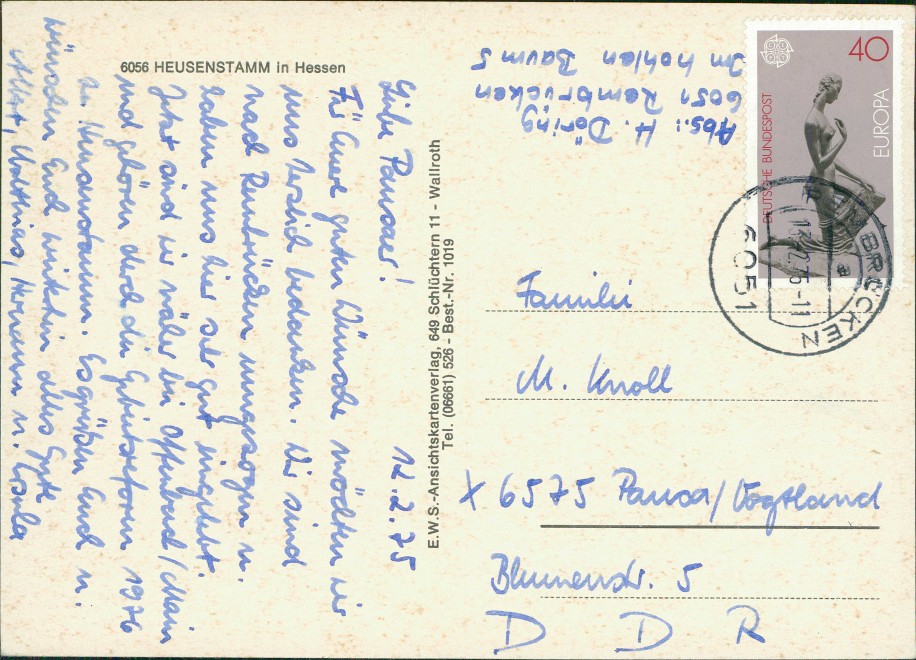 6056 HEUSENSTAMM in Hessen
Liebe Pausaer! 12.2.75
Für Euere guten Wünsche möchten wir
uns herzlich bedanken. Wir sind
nach Rembrücken umgezogen u.
haben uns hier sehr gut eingelebt.
Jetzt sind wir näher bei Offenbach/Main
und gehören durch die Gebietsreform 1976
zu Heusenstamm. Es grüßen Euch u.
wünschen Euch weiterhin alles Gute
Matthias, Hermann u. Ursula
E.W.S.-Ansichtskartenverlag, 649 Schlüchtern 11 - Wallroth
Tel. (06661) 526 - Best.-Nr. 1019
Abs.: H. Döring
6051 Rembrücken
Im hohlen Baum 5
40
DEUTSCHE BUNDESPOST
EUROPA
6051
BRÜCKEN
Familie
M. Knoll
X 6575 Pausa/Vogtland
Blumenstr. 5
D D R